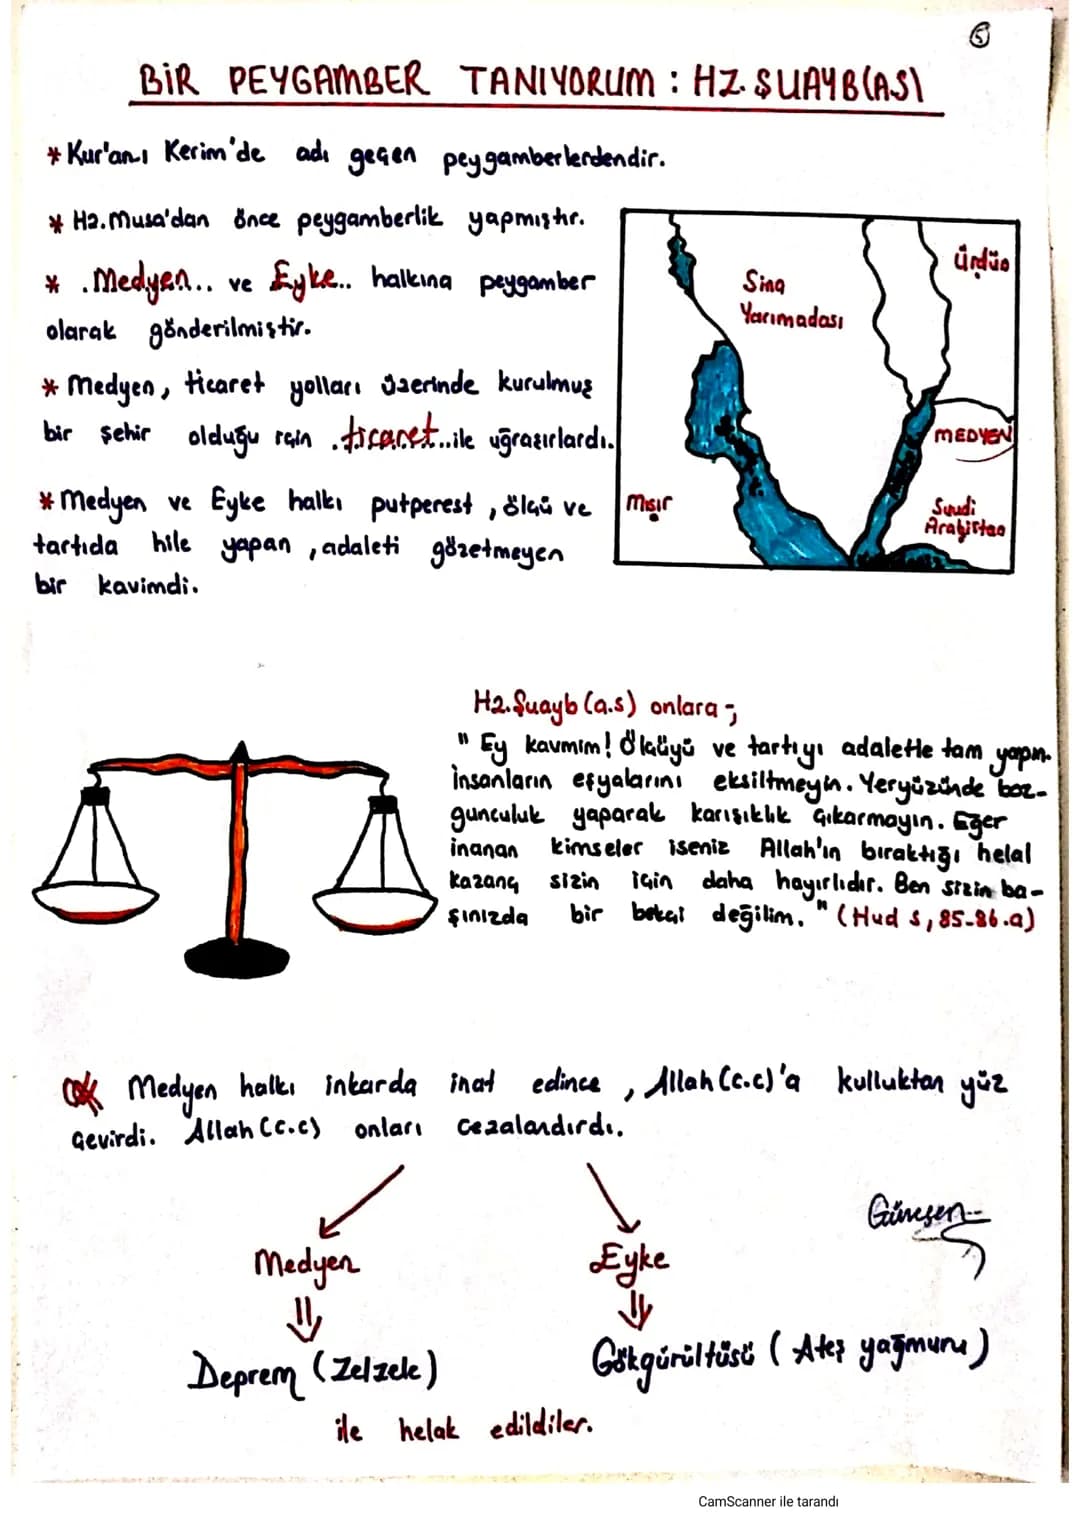 5
BİR PEYGAMBER TANIYORUM : HZ. ŞUAYB(AS)
* Kur'an-ı Kerim'de adı geçen peygamberlerdendir.
* Hz. Musa'dan önce peygamberlik yapmıştır.
* .Medyen.. ve Eyke.. halkına peygamber
olarak gönderilmiştir.
* Medyen, ticaret yolları üzerinde kurulmuş
bir şehir olduğu için .ticaret..ile uğraşırlardı.
* Medyen ve Eyke halkı putperest, ölçü ve
tartıda hile yapan, adaleti gözetmeyen
bir kavimdi.
Sina
Yarımadası
Ürdün
MEDYEN
Mısır
Suudi
Arabistan
Hz. Şuayb (a.s) onlara ;
" Ey kavmim! Ölçüyü ve tartıyı adaletle tam yapın.
İnsanların eşyalarını eksiltmeyin. Yeryüzünde boz-
gunculuk yaparak karışıklık çıkarmayın. Eğer
inanan kimseler iseniz Allah'ın bıraktığı helal
kazanç sizin için daha hayırlıdır. Ben sizin ba-
şınızda bir bekçi değilim." (Hud s, 85-86.a)
Medyen halkı inkarda inat edince, Allah (c.c)'a kulluktan yüz
çevirdi. Allah (c.c) onları cezalandırdı.
Güneşen
Medyen
Eyke
Deprem (Zelzele)
Gökgürültüsü (Ateş yağmuru)
ile helak edildiler.
CamScanner ile tarandı